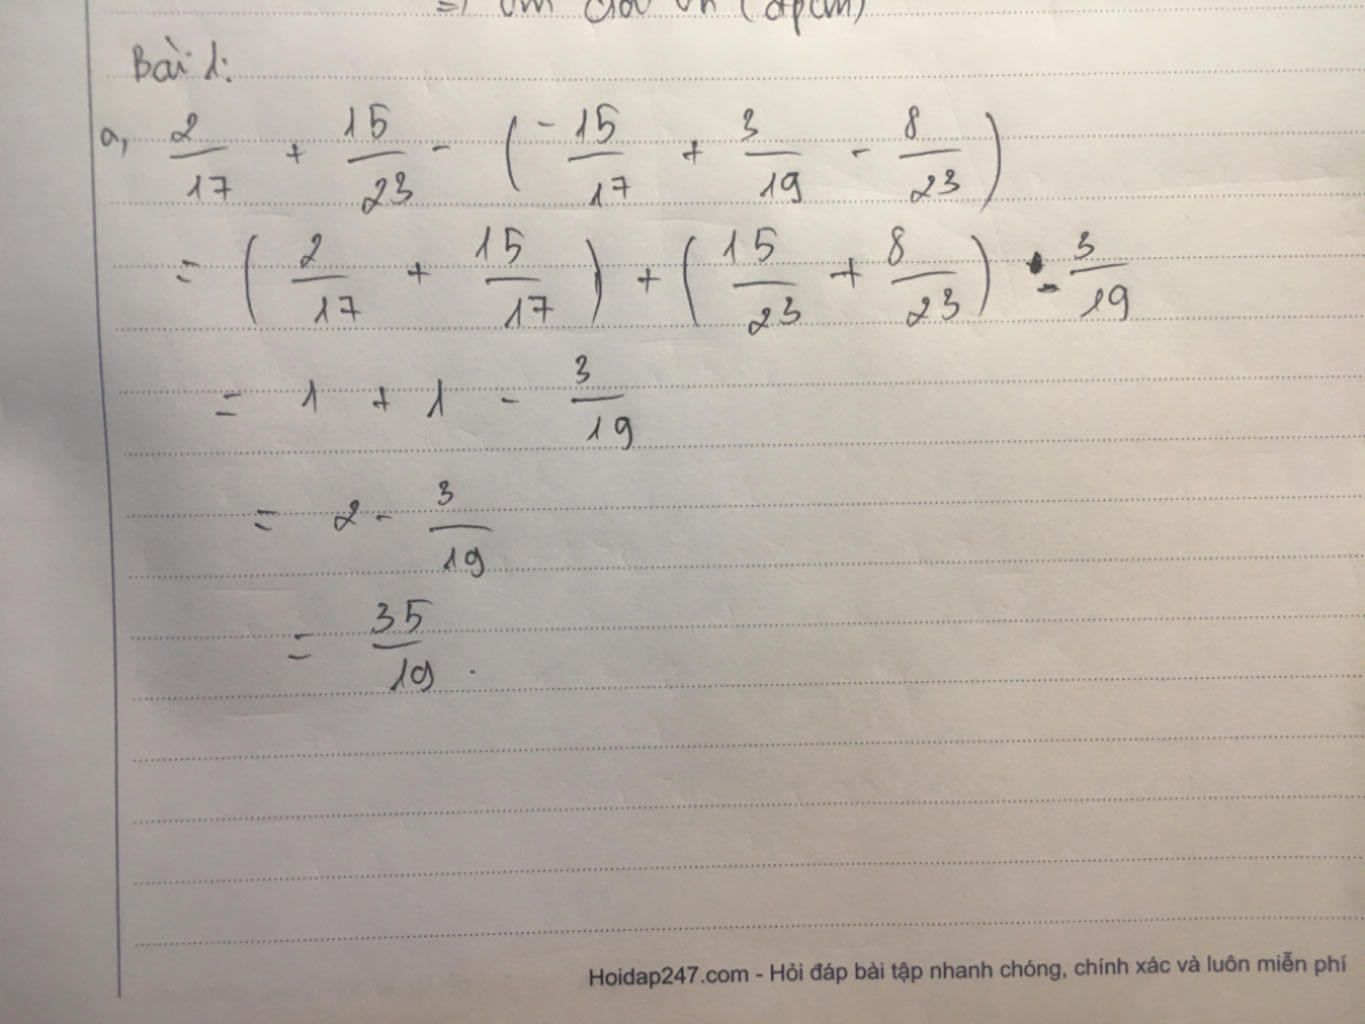 Bài 1:
a, 2/17 + 15/23 - (-15/17 + 3/19 - 8/23)
= (2/17 + 15/17) + (15/23 + 8/23) - 3/19
= 1 + 1 - 3/19
= 2 - 3/19
= 35/19.
Hoidap247.com - Hỏi đáp bài tập nhanh chóng, chính xác và luôn miễn phí